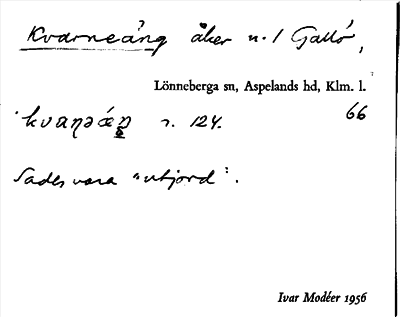 Kvarneäng åker n. 1 Gallö,
Lönneberga sn, Aspelands hd, Klm. l.
66
s. 124.
Sades vara "utjord".
Ivar Modéer 1956